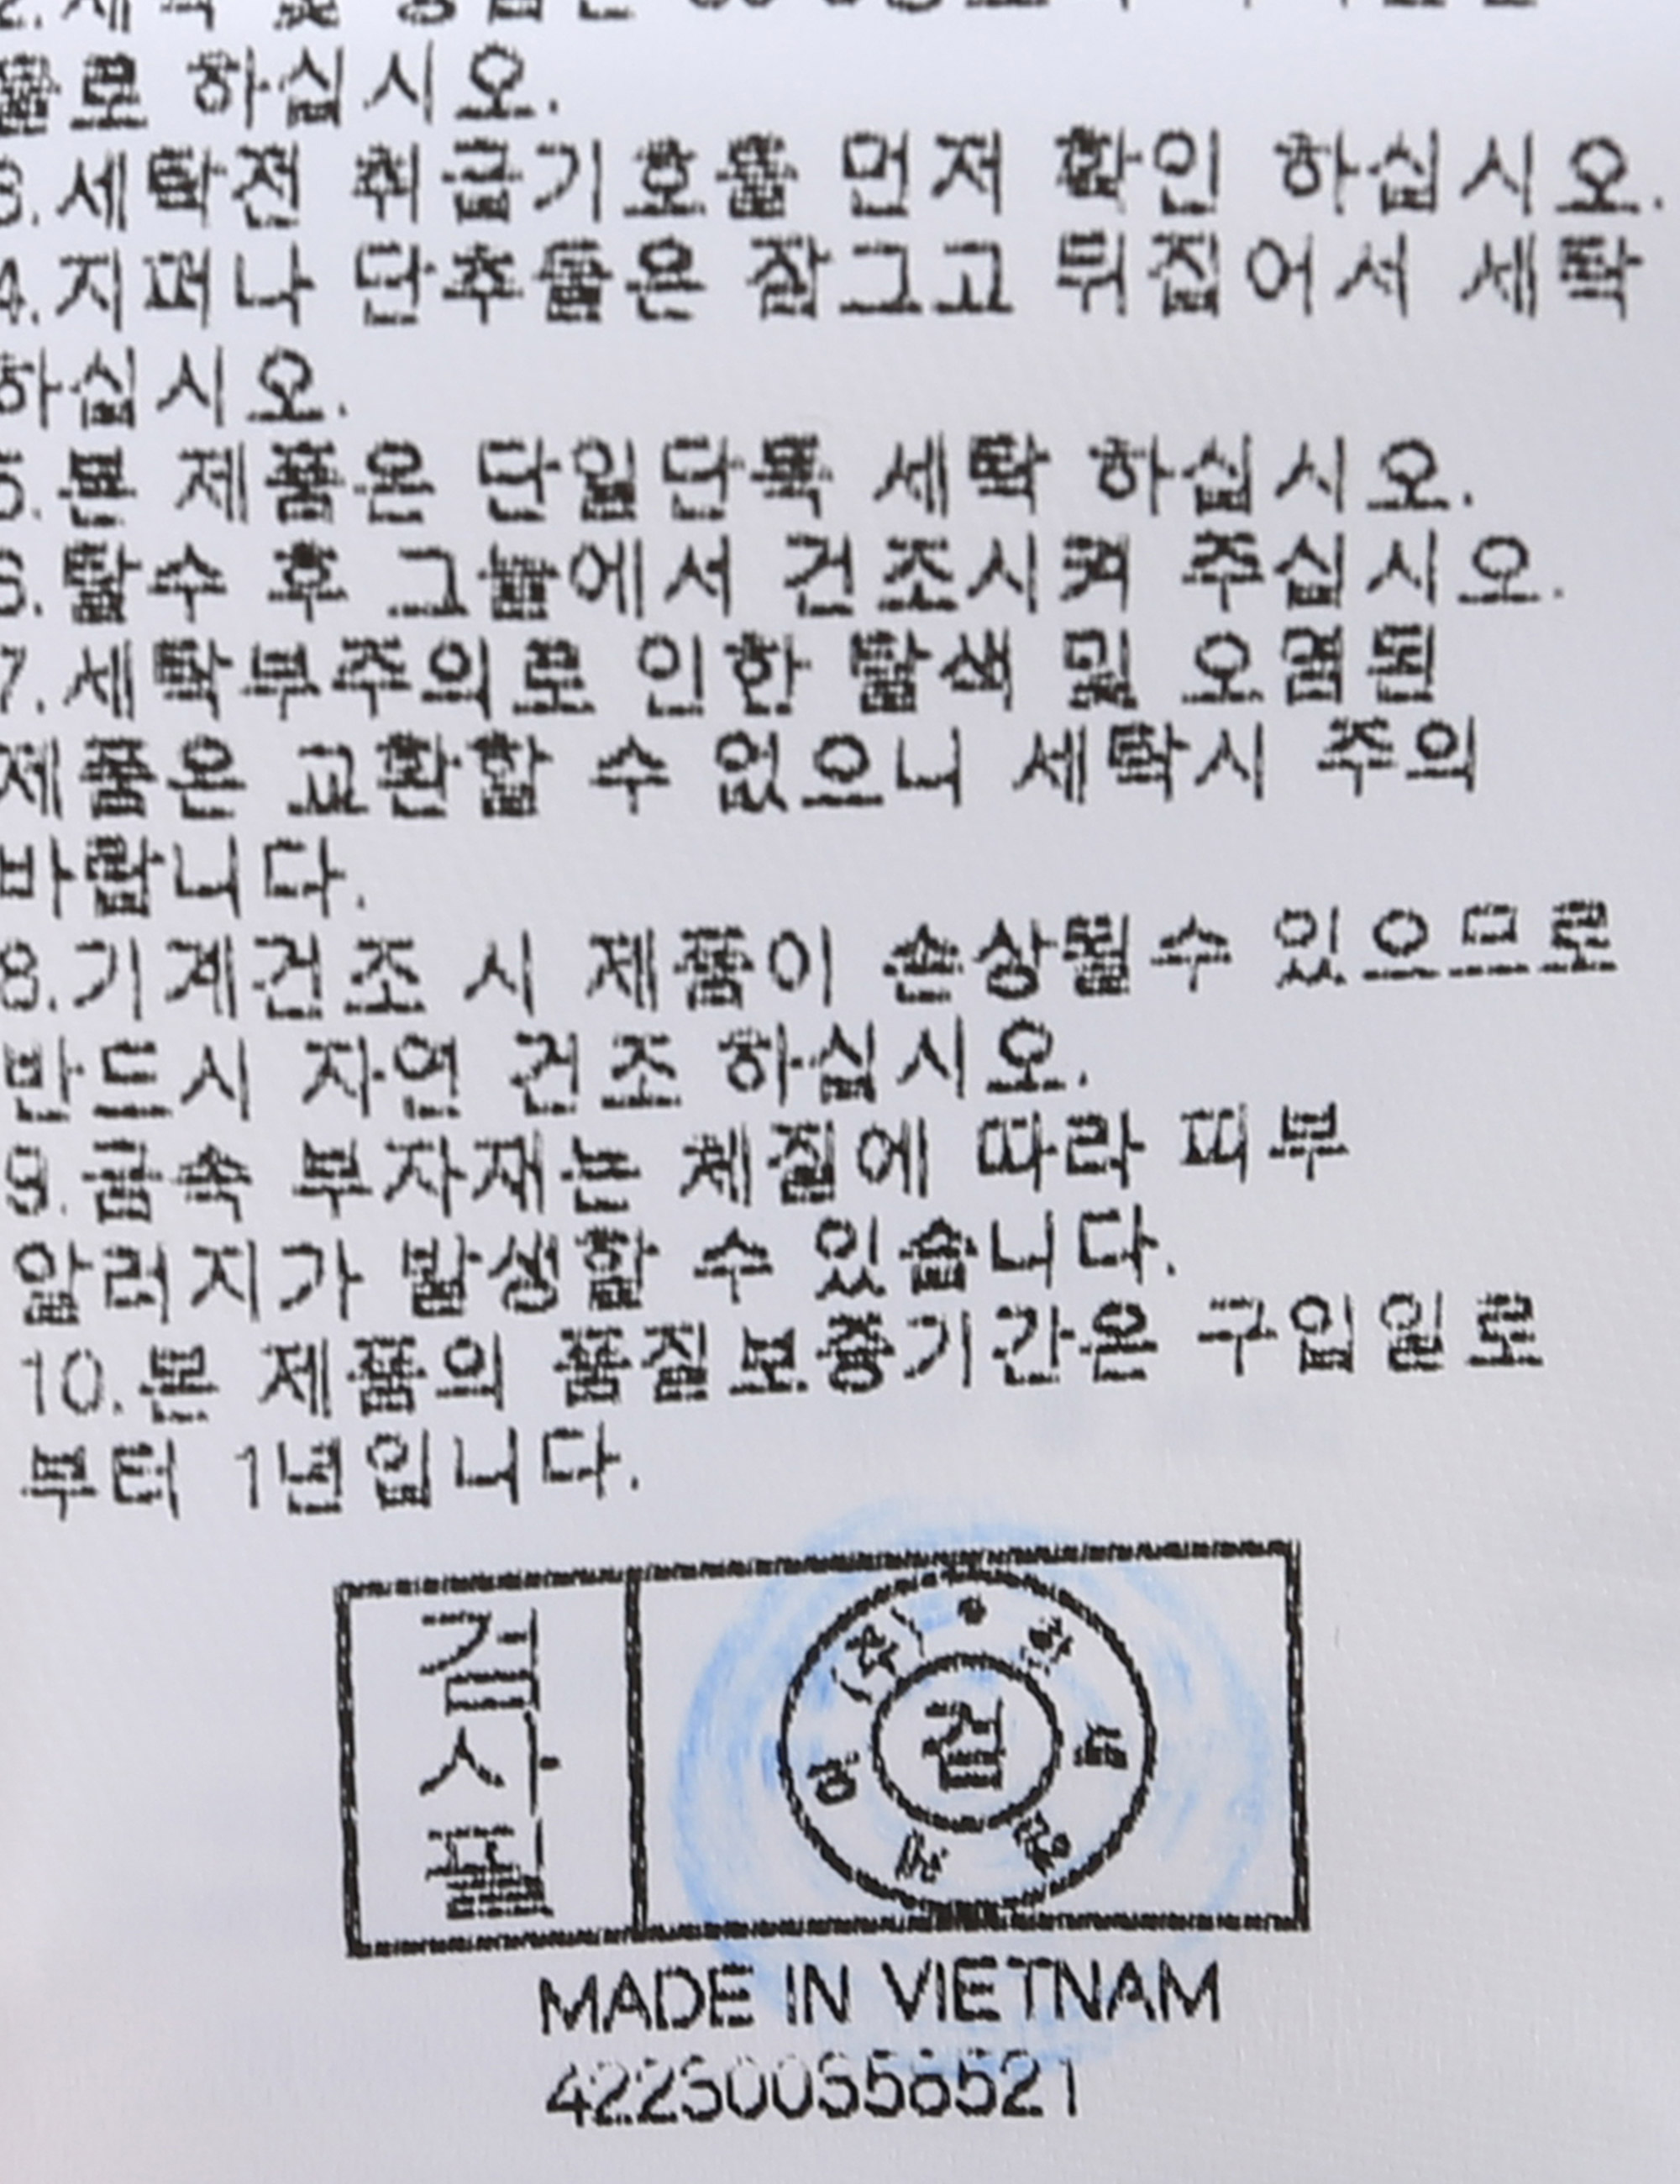 물로 하십시오.
3.세탁전 취급기호를 먼저 확인 하십시오.
4.지퍼나 단추들은 잠그고 뒤집어서 세탁
하십시오.
5.본 제품은 단일단독 세탁 하십시오.
6.탈수 후 그늘에서 건조시켜 주십시오.
7.세탁부주의로 인한 탈색 및 오염된
제품은 교환할 수 없으니 세탁시 주의
바랍니다.
8.기계건조 시 제품이 손상될수 있으므로
반드시 자연 건조 하십시오.
9.금속 부자재는 체질에 따라 피부
알러지가 발생할 수 있습니다.
10.본 제품의 품질보증기간은 구입일로
부터 1년입니다.
검사필
검
MADE IN VIETNAM